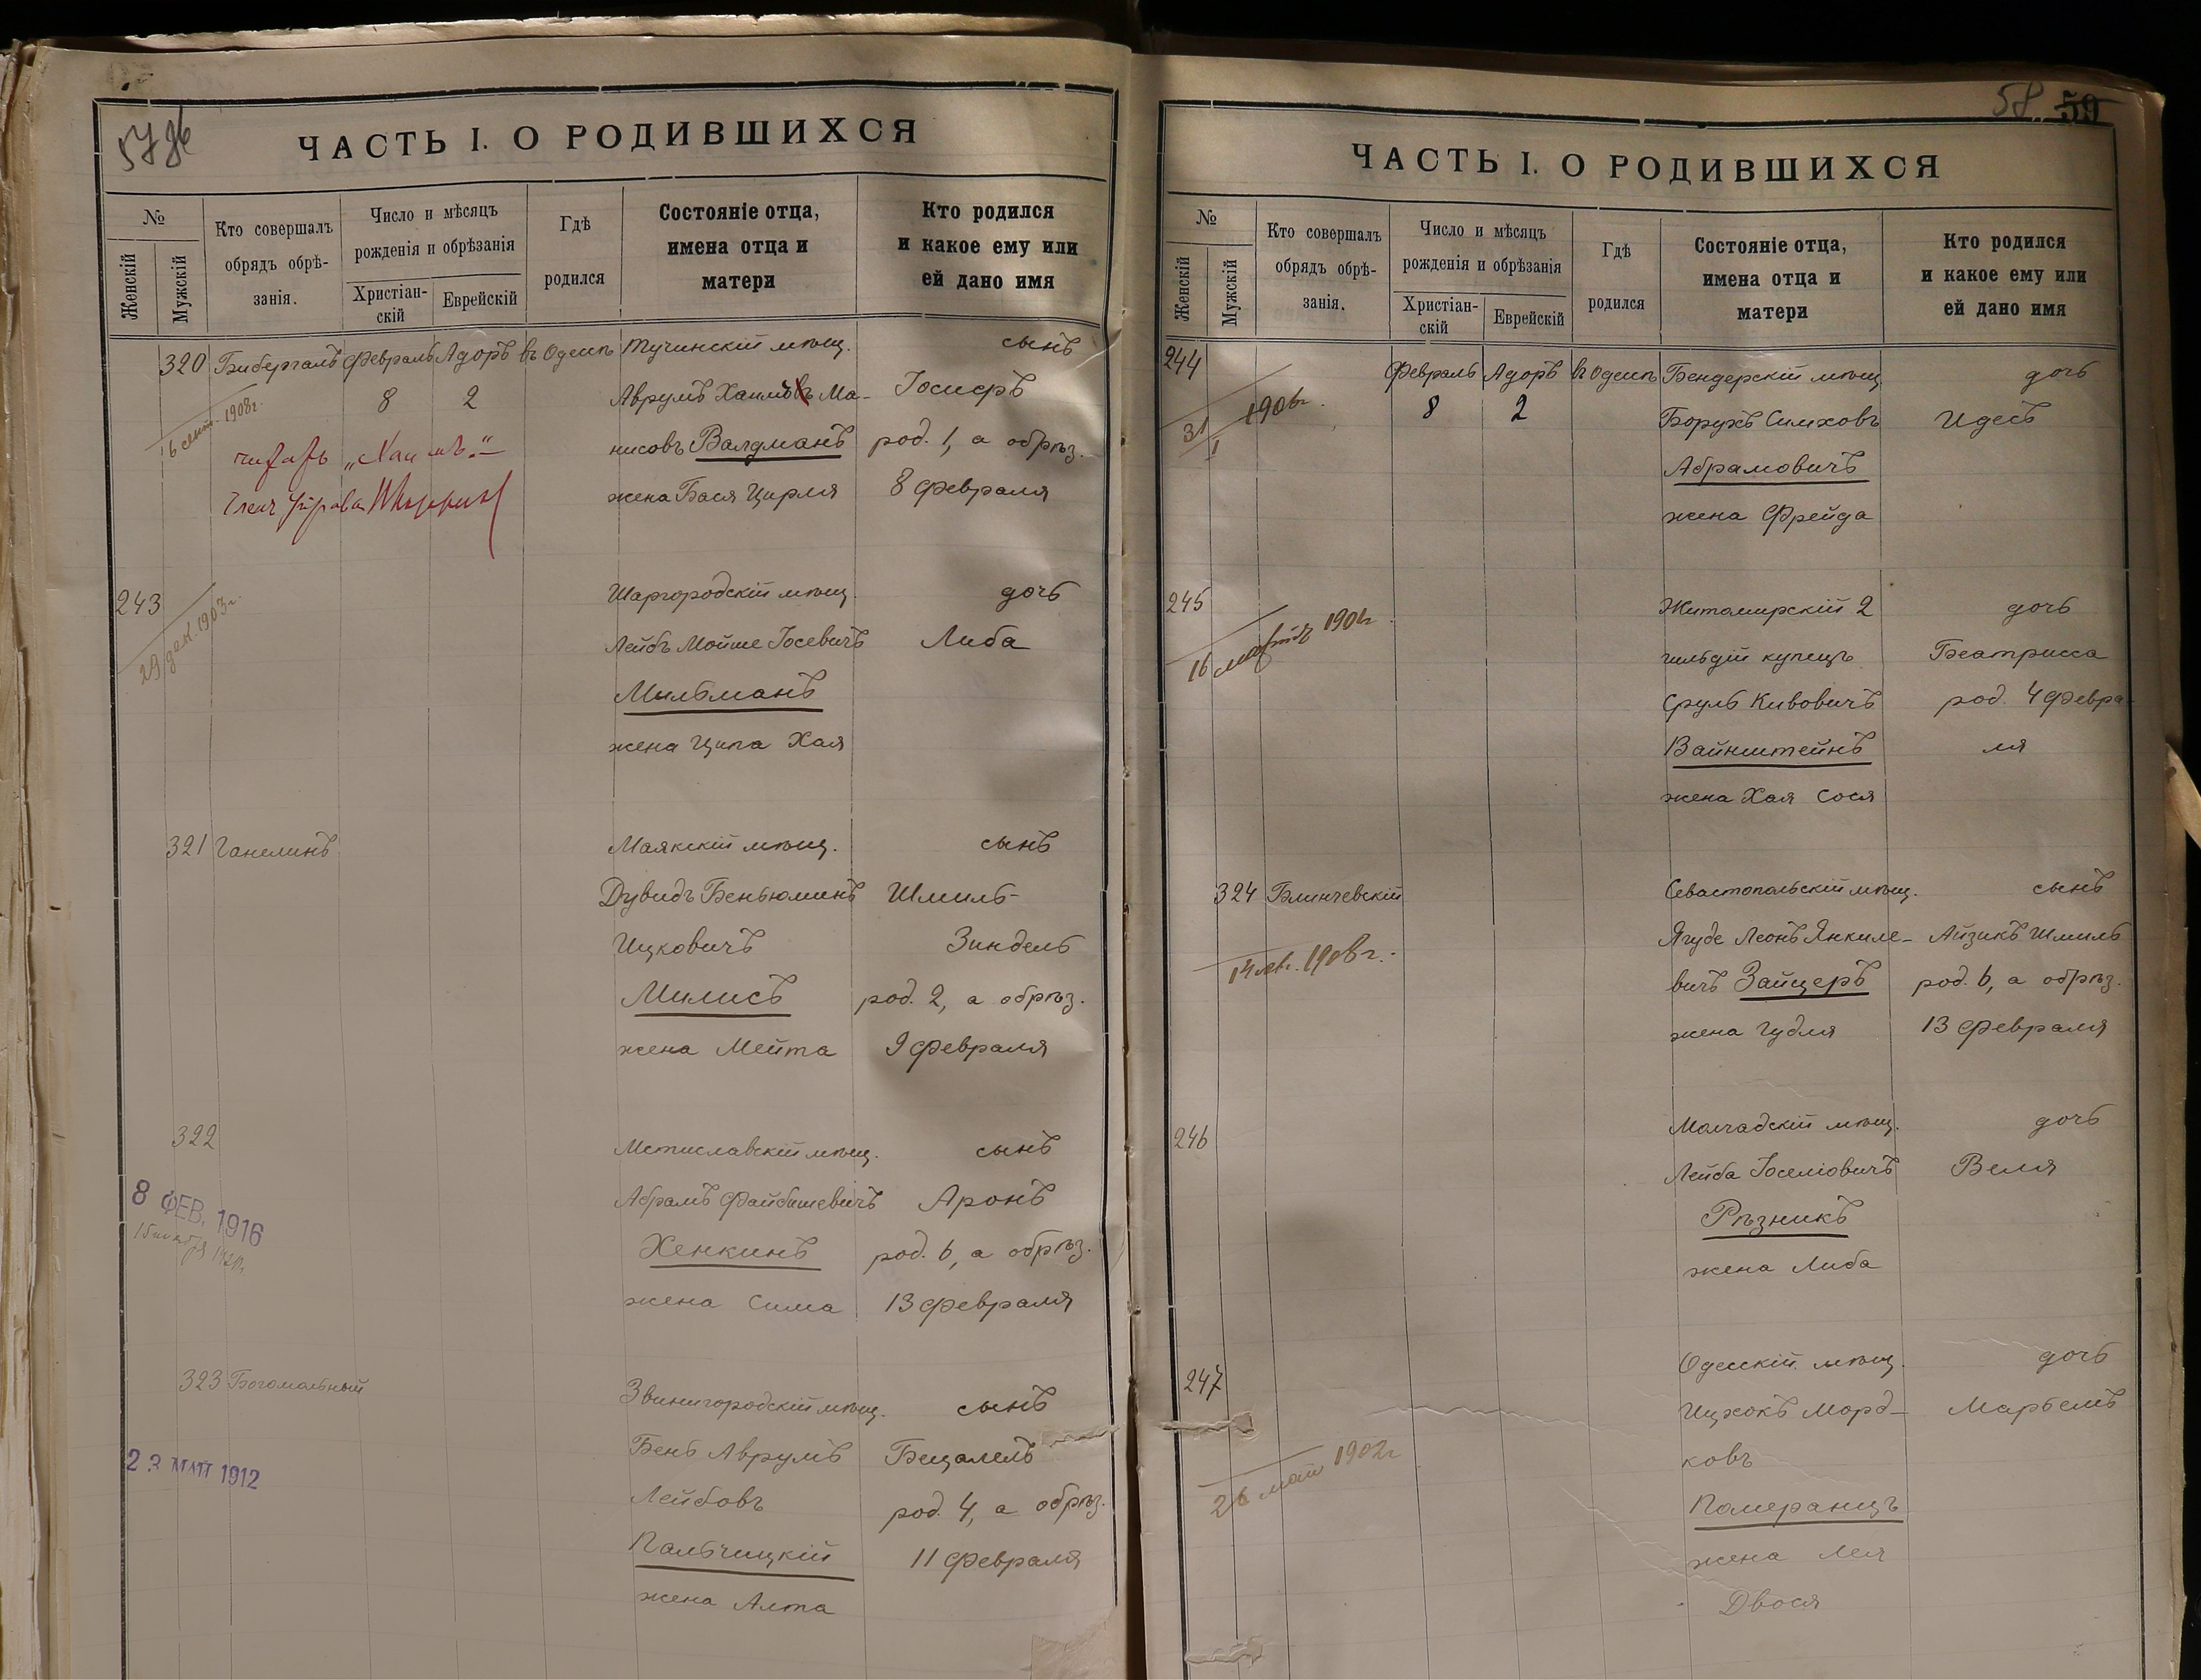 57 об
ЧАСТЬ I. О РОДИВШИХСЯ
№
Женскій
Мужскій
Кто совершалъ
обрядъ обрѣ-
занія.
Число и мѣсяцъ
рожденія и обрѣзанія
Христіан-
скій
Еврейскій
Гдѣ
родился
Состояніе отца,
имена отца и
матери
Кто родился
и какое ему или
ей дано имя
320 Бибергалъ Февраль Адоръ въ Одессѣ Тучинскій мѣщ. сынъ
16 сент. 1908 г.
8 2 Аврумъ Хаимовъ Ма- Іосифъ
читать „Хаимъ“.
нисовъ Валдманъ род. 1, а обрѣз.
Членъ Управы
жена Бася Цирля 8 февраля
243 Шаргородскій мѣщ. дочь
29 дек. 1903 г.
Лейбъ Мойше Іосевичъ Либа
Мильманъ
жена Ципа Хая
321 Ганелинъ Маякскій мѣщ. сынъ
Дувидъ Беньюминъ Шмиль-
Ицковичъ Зиндель
Милисъ род. 2, а обрѣз.
жена Мейта 9 февраля
322 Мстиславскій мѣщ. сынъ
8 ФЕВ. 1916
Абрамъ Файбишевичъ Аронъ
Хенкинъ род. 6, а обрѣз.
жена Сима 13 февраля
323 Богомольный Звинигородскій мѣщ. сынъ
23 МАЙ 1912
Бень Аврумъ Бецалель
Лейбовъ род. 4, а обрѣз.
Пальчицкій 11 февраля
жена Алта
58 59
ЧАСТЬ I. О РОДИВШИХСЯ
№
Женскій
Мужскій
Кто совершалъ
обрядъ обрѣ-
занія.
Число и мѣсяцъ
рожденія и обрѣзанія
Христіан-
скій
Еврейскій
Гдѣ
родился
Состояніе отца,
имена отца и
матери
Кто родился
и какое ему или
ей дано имя
244 Февраль Адоръ въ Одессѣ Бендерскій мѣщ. дочь
31/I 1906 г.
8 2 Борухъ Симховъ Идесъ
Абрамовичъ
жена Фрейда
245 Житомирскій 2 дочь
16 марта 190
гильдій купецъ Беатрисса
Сруль Кивовичъ род. 4 февра-
Вайнштейнъ ля
жена Хая Сося
324 Блинчевскій Севастопольскій мѣщ. сынъ
1908 г.
Ягуде Леонъ Янкиле- Айзикъ Шмиль
вичъ Зайцеръ род. 6, а обрѣз.
жена Гудля 13 февраля
246 Молчадскій мѣщ. дочь
Лейба Іоселіовичъ Веля
Рѣзникъ
жена Либа
247 Одесскій мѣщ. дочь
Ицхокъ Морд- Марьемъ
ковъ
26 мая 1902 г.
Померанцъ
жена Лея
Двося